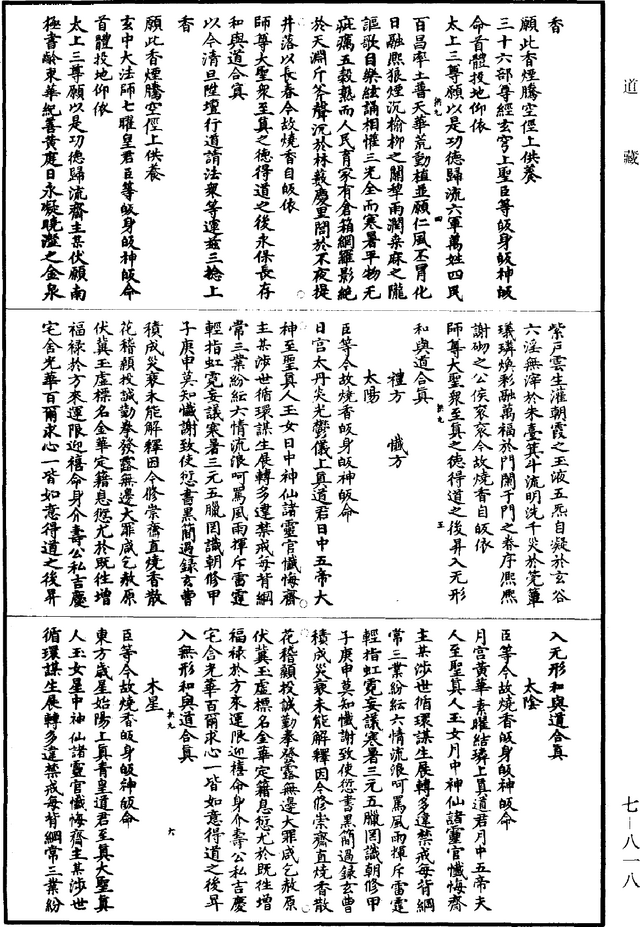 道藏
香
願此香煙騰空徑上供養
三十六部尊經玄穹上聖臣等皈身皈神皈
命首體投地仰依
太上三尊願以是功德歸流六軍萬姓四民
百昌率土普天華荒動植並願仁風丕冒化
日融熙狼煙沉榆柳之關犁雨潤桑麻之隴
謳歌日樂絃誦相惟三光全而寒暑平物无
疵癘五穀熟而人民育家有倉箱網羅影絶
於天淵斤斧聲沉於林藪慶里閭於不夜提
井落以長春今故燒香自皈依
師尊大聖衆至真之德得道之後永保長存
和與道合真
以今清旦陞壇行道請法衆等運兹三捻上
香
願此香煙騰空徑上供養
玄中大法師七曜皇君臣等皈身皈神皈命
首體投地仰依
太上三尊願以是功德歸流齋主某伏願南
極書齡東華紀善黄庭日永凝曉瀣之金泉
紫戶雲生灌朝霞之玉液五炁自凝於玄谷
六淫無滓於朱臺箕斗流明洗千災於筦簞
璣璘煥彩融萬福於門闌于門之春序熙熙
謝砌之公侯衮衮今故燒香自皈依
師尊大聖衆至真之德得道之後昇入无形
和與道合真
禮方　懺方
太陽
臣等今故燒香皈身皈神皈命
日宮太丹炎光鬱儀上真道君日中五帝大
神至聖真人玉女日中神仙諸靈官懺悔齋
主某涉世循環謀生展轉多違禁戒每背綱
常三業紛紜六情流浪呵罵風雨揮斥雷霆
輕指虹霓妄議寒暑三元五臘罔識朝修甲
子庚申莫知懺謝致使愆書黑簡過録玄曹
積成災衰未能解釋因今修崇齋直燒香散
花稽顙投誠勤拳發露無邊大罪咸乞赦原
伏冀玉虚標名金華定籍息愆尤於既往增
福禄於方來運限迎禧命身介壽公私吉慶
宅舍光華百爾求心一皆如意得道之後昇
入无形和與道合真
太陰
臣等今故燒香皈身皈神皈命
月宮黄華素曜結璘上真道君月中五帝夫
人至聖真人玉女月中神仙諸靈官懺悔齋
主某涉世循環謀生展轉多違禁戒每背綱
常三業紛紜六情流浪呵罵風雨揮斥雷霆
輕指虹霓妄議寒暑三元五臘罔識朝修甲
子庚申莫知懺謝致使愆書黑簡過録玄曹
積成災衰未能解釋因今修崇齋直燒香散
花稽顙投誠勤拳發露無邊大罪咸乞赦原
伏冀玉虚標名金華定籍息愆尤於既往增
福禄於方來運限迎禧命身介壽公私吉慶
宅舍光華百爾求心一皆如意得道之後昇
入無形和與道合真
木星
臣等今故燒香皈身皈神皈命
東方歲星始陽上真青皇道君至真大聖真
人玉女星中神仙諸靈官懺悔齋主某涉世
循環謀生展轉多違禁戒每背綱常三業紛
七—八一八